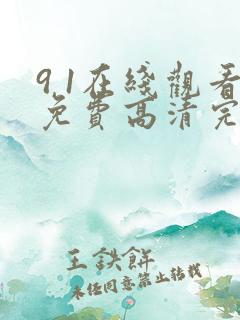 91在綫觀看
免費高清完
王鉄餅
未经同意禁止转载